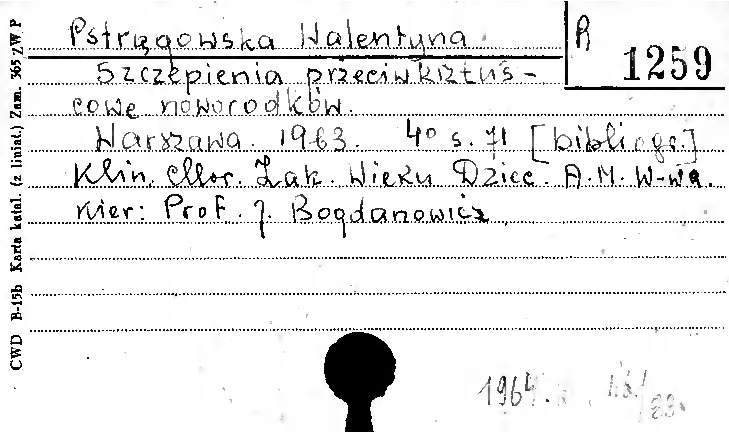 Pstrągowska Walentyna.
R 1259
Szczepienia przeciwkrztuś-
cowe noworodków.
Warszawa. 1963. 4° s. 71 [bibliogr.]
Klin. Chor. Zak. Wieku Dziec. A.M. W-wa.
Kier: Prof. J. Bogdanowicz
CWD B-15b Karta katal. (z liniat.) Zam. 365 ZWP
1964.